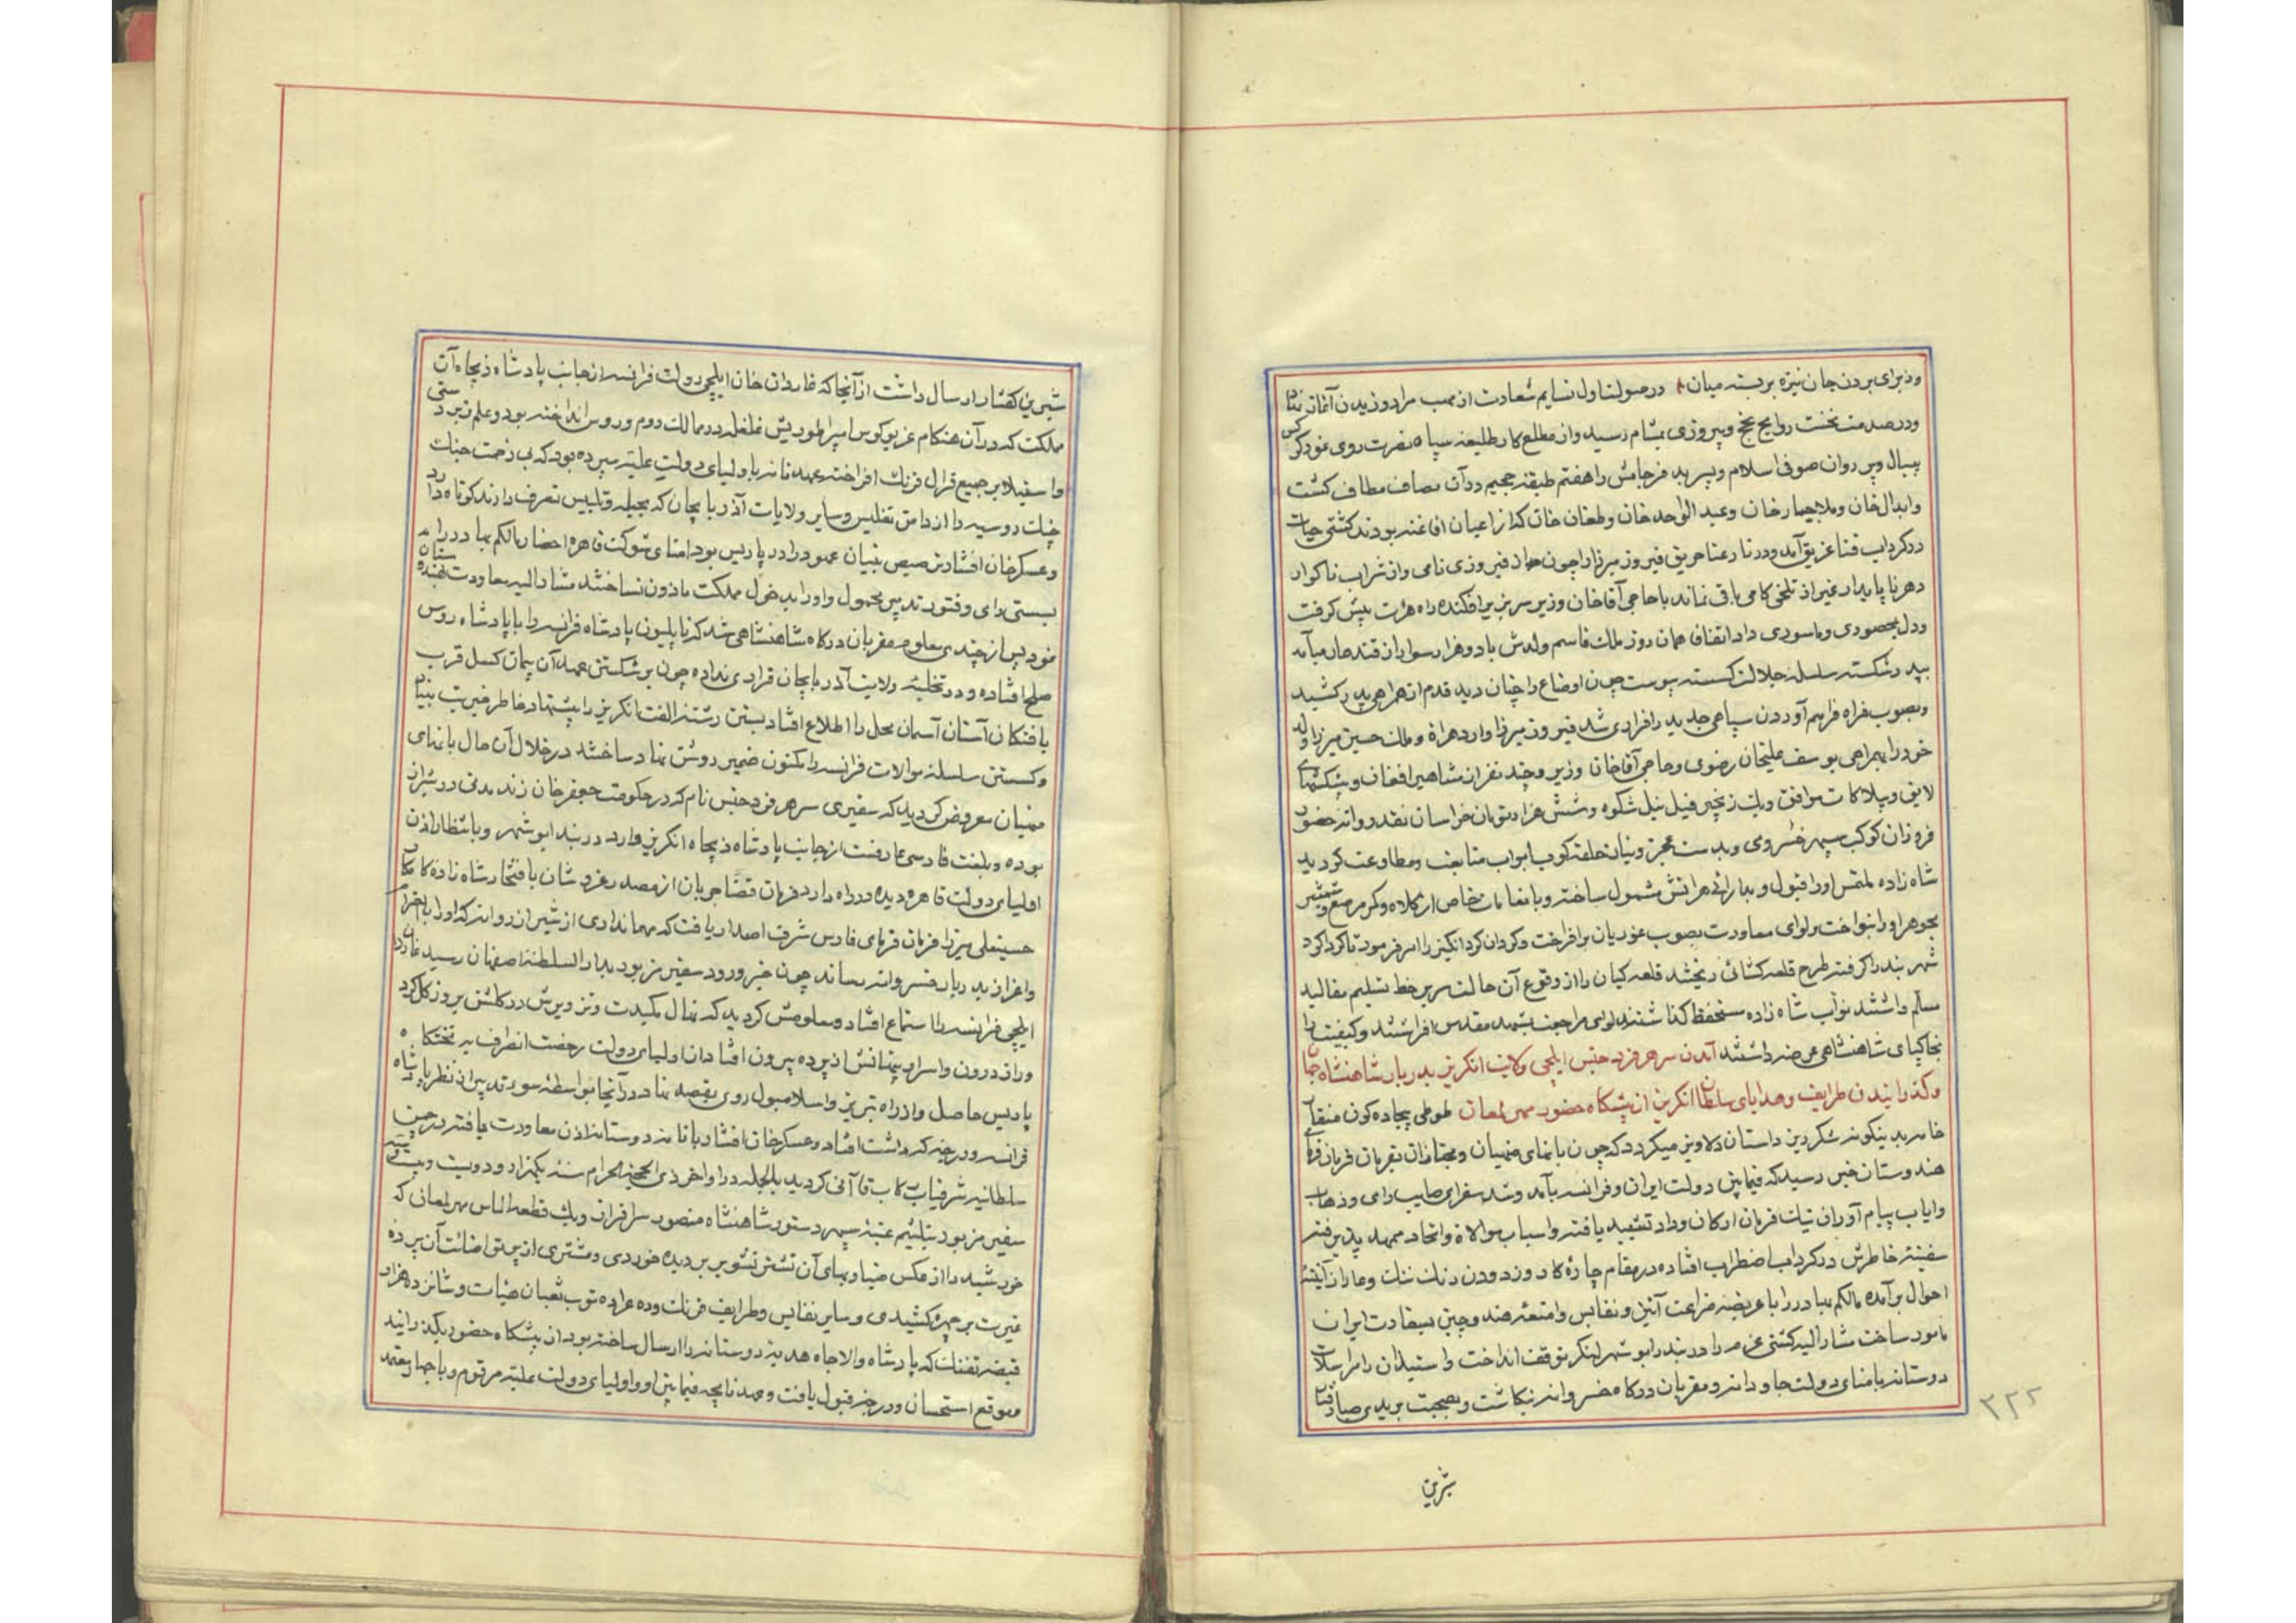 وز برای بردن جان نیزه بربسته میان در صولت اول نسایم سعادت از مهب مراد وزیدن آغاز نهاد
و در صدمت نخست روایح نجح و پیروزی بمشام رسید و از مطلع کار طلیعه سپاه نصرت روی نمود کرکس
پیر روان صوفی اسلام و پسر بد فرجامش را هفتم طبقه جحیم در آن مصاف مطاف کشت
و ابدال خان و ملا بیجار خان و عبد الواحد خان و طغان خان که از اعیان افاغنه بودند کشتی حیات
در کرداب فنا غریق آمد و در نار عنا حریق فیروز میرزا را چون جز از فیروزی نامی و از شراب ناکوار
دهر ناپایدار غیر از تلخی کامی باقی نماند با حاجی آقا خان وزیر سر بزیر افکنده راه هرات پیش کرفت
و دل بمحصوری و ماسوری داد اتفاقا همان روز ملک قاسم ولدش با دو هزار سوار از قندهار میآمد
پدر شکسته سلسله جلالت کسسته پیوست چون اوضاع را چنان دید قدم از همراهی پدر کشید
و بصوب فراه فراهم آوردن سپاهی جدید را فراری شد فیروز میرزا وارد هراة و ملک حسین میرزا ولد
خود را بهمراهی یوسف علیخان رضوی و حاجی آقا خان وزیر و چند نفر از مشاهیر افغان و پیشکشهای
لایق و پیلاکات موافق و یک زنجیر فیل نیل شکوه و شش هزار تومان خراسان نقد روانه حضور
فروزان کوکب سپهر خسروی و بدست عجز و نیاز حلقه کوب ابواب متابعت و مطاوعت کردید
شاه زاده ملتمس او را قبول و بدارائی هراتش مشمول ساخته و بانعامات خاص از کلاه و کمر مرصع و شمشیر
بجوهر او را بنواخت بر لوای معاودت بصوب غوریان برافراخت و کردان کرد انکیز را امر فرمود تا کرداکرد
شهر بند را کرفته طرح قلعه کشائی ریختند قلعه کیان را از وقوع آن حالت سر بر خط تسلیم مقالید
مسلم داشتند نواب شاه زاده مستحفظ کذاشتند لوای مراجعت بمشهد مقدس افراشتند و کیفیت را
بخاکپای شاهنشاهی عرضه داشتند آمدن سر هر فرد جنس ایلچی ولایت انکریز بدربار شاهنشاه جهان
و کذرانیدن طرایف و هدایای سلطان انکریز از پیشکاه حضور مهر لمعان طوطی بیجاده کون منقار
خامه بدینکونه شکر ریز داستان دلاویز میکردد که چون بانهای منهیان و مجتازان تقربان فرمان فرمای
هندوستان خبر رسید که فیمابین دولت ایران و فرانسه بآمد و شد سفرای صایب رای و ذهاب
و ایاب پیام آوران نیک فرمان ارکان وداد تشیید یافته و اسباب موالاة و اتحاد ممهد پذیرفته
سفینه خاطرش در کرداب اضطراب افتاده در مقام چارهٔ کار و زدودن زنک ننک و عار از آئینهٔ
احوال برآمده مالکم بهادر را با عریضه ضراعت آئین و نفایس و امتعه هند و چین بسفارت ایران
مامور ساخت مشار الیه کشتی عزم را در بندر ابو شهر لنکر توقف انداخت و استیذان را مراسلات
دوستانه بامنای دولت جاودانه و مقربان درکاه خسروانه نکاشت و بصحبت بریدی صبا رفتار
۳۲۲
شیرین
شیرین کفتار ارسال داشت از آنجا که غاردان خان ایلچی دولت فرانسه از جانب پادشاه ذیجاه آن
مملکت که در آن هنکام غریو کوس امپراطوریش غلغله در ممالک روم و روس انداخته بود و علم زبردستی
و استیلا بر جمیع قرال فرنک افراخته عهد نامه باولیای دولت علیه سپرده بود که بی زحمت جنک
چنک روسیه را از دامن تفلیس و سایر ولایات آذربایجان که بحیله و تلبیس تصرف دارند کوتاه دارد
و عسکر خان افشار ترصیص بنیان عهود را در پاریس بود امنای شوکت قاهره احضار مالکم بهادر را
بسستی رای و فتور تدبیر محمول و او را بدخول مملکت ماذون نساختند مشار الیه معاودت بهندوستان
نمود پس از چندی معلوم مقربان درکاه شاهنشاهی شد که ناپلیون پادشاه فرانسه را با پادشاه روس
صلح افتاده و در تخلیه ولایت آذربایجان قراری نداده چون بر شکستن عهد آن پیمان کسل قرب
یافتکان آستان آسمان محل را اطلاع افتاد بستن رشته الفت انکریز را پیشنهاد خاطر خیریت بنیاد
و کسستن سلسله موالات فرانسه را مکنون ضمیر روشن نهاد ساختند در خلال آن حال بانهای
منهیان معروض کردید که سفیری سر هر فرد جنس نام که در حکومت جعفر خان زند مدتی در شیراز
بوده و بلغت فارسی عارفست از جانب پادشاه ذیجاه انکریز وارد در بند ابو شهر و بانتظار اذن
اولیای دولت قاهره دیده در راه دارد فرمان قضا جریان از مصدر عز و شان بافتخار شاه زاده کامکار
حسینعلی میرزا فرمان فرمای فارس شرف اصدار یافت که مهمانداری از شیراز روانه کند او را باحترام
و اعزاز بدربار خسروانه رساند چون خبر ورود سفیر مزبور بدار السلطنه اصفهان رسید غاردان
ایلچی فرانسه را استماع افتاد و معلومش کردید که نهال مکیدت و تزویرش در کلشن بروز کل کرد
و راز درون و اسرار پنهانش از پرده بیرون افتاد از اولیای دولت رخصت انطرف به تختکاه
پاریس حاصل و از راه تبریز و اسلامبول روی بقصد نهاد در آنجا بواسطه سوء تدبیر از نظر پادشاه
فرانسه و درجه که داشت افتاد و عسکر خان افشار با نامه دوستانه اذن معاودت یافته در چمن
سلطانیه شرفیاب رکاب قا آنی کردید بالجمله در اواخر ذی الحجة الحرام سنه یکهزار و دویست و بیست و
سفیر مزبور بتلثیم عتبه سپهر دستور شاهنشاه منصور سرافراز و یک قطعه الماس مهر لمعان که
خورشید را از عکس ضیاء و بهای آن تشتر تشویر بر دیده خوردی و مشتری از پرتو اضائت آن پرده
غیرت بر چهره کشیدی و سایر نفایس و طرایف فرنک و ده عراده توپ ثعبان هیات و شانزده هزار
قبضه تفنک که پادشاه والا جاه هدیه دوستانه را ارسال ساخته بود از پیشکاه حضور بکذرانید
و موقع استحسان و درجه قبول یافت و عهد نامچه فیمابین او و اولیای دولت علیه مرقوم و باجهار معتمد